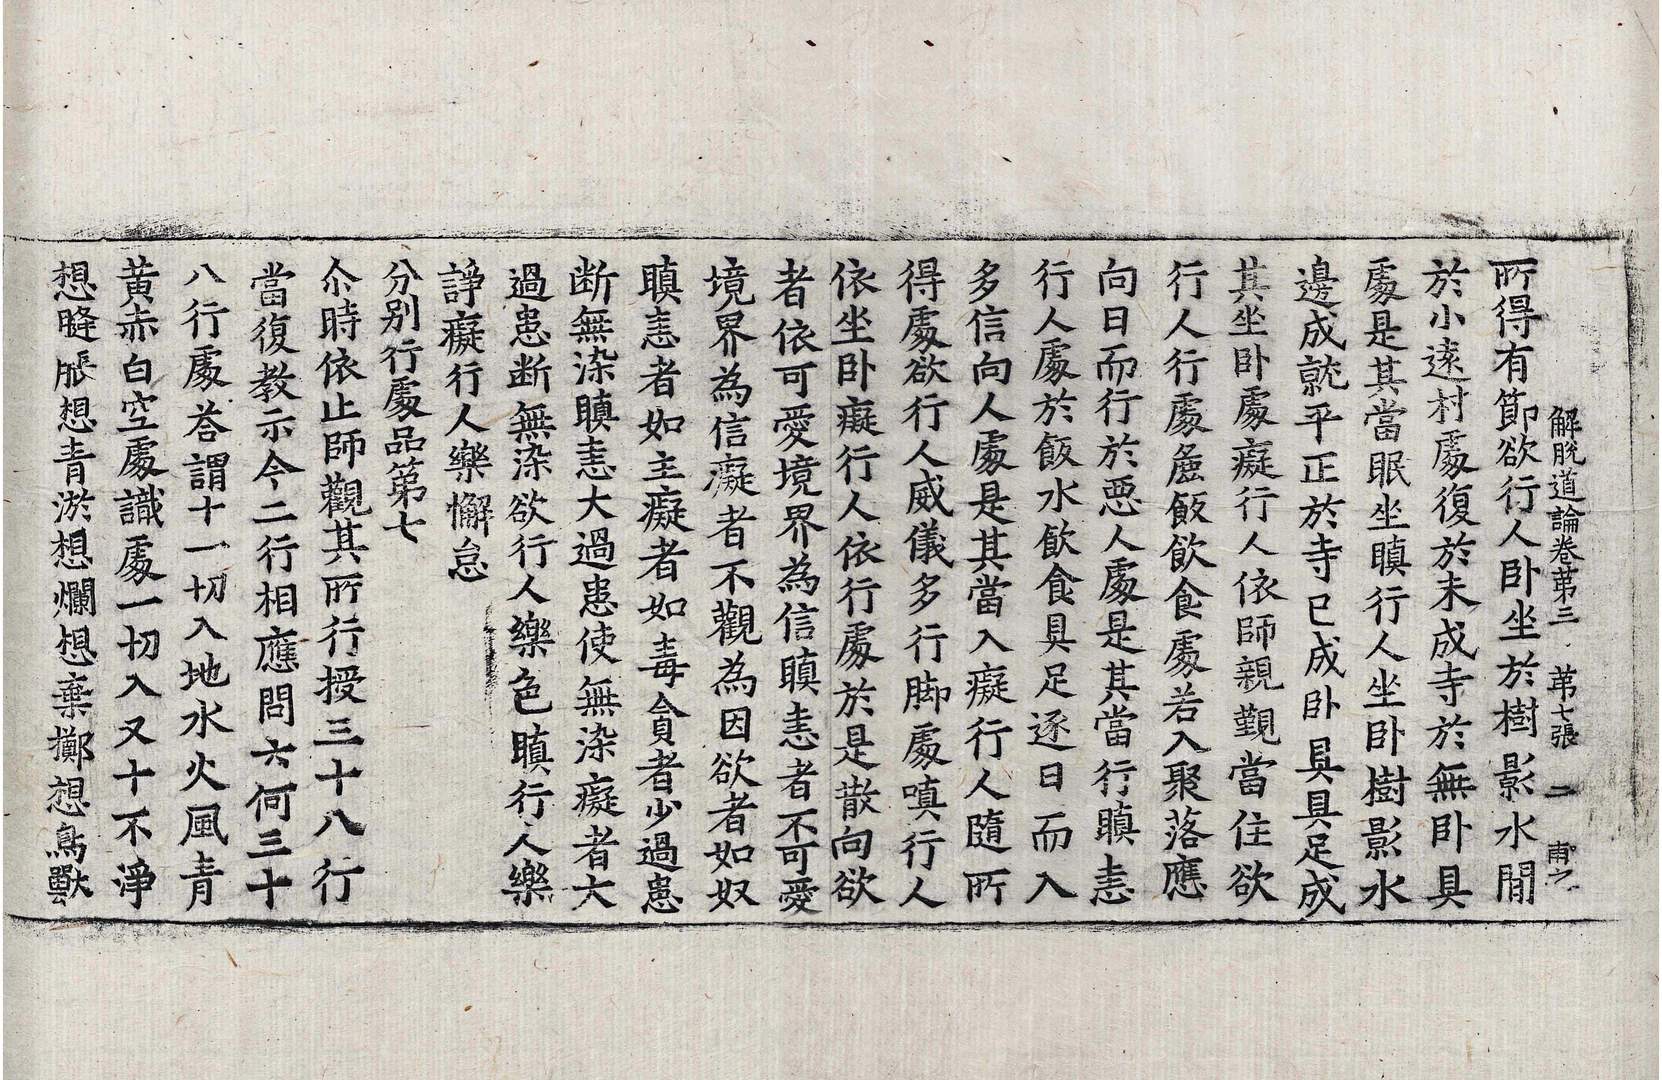 解脫道論卷第三　第七張　二　甫之
所得有節欲行人卧坐於樹影水間
於小遠村處復於未成寺於無卧具
處是其當眠坐瞋行人坐卧樹影水
邊成就平正於寺已成卧具具足成
其坐卧處癡行人依師親覲當住欲
行人行處麁飯飲食處若入聚落應
向日而行於惡人處是其當行瞋恚
行人處於飯水飲食具足逐日而入
多信向人處是其當入癡行人隨所
得處欲行人威儀多行脚處嗔行人
依坐卧癡行人依行處於是散向欲
者依可愛境界為信瞋恚者不可愛
境界為信癡者不觀為因欲者如奴
瞋恚者如主癡者如毒貪者少過患
断無染瞋恚大過患使無染癡者大
過患断無染欲行人樂色瞋行人樂
諍癡行人樂懈怠
分別行處品第七
尒時依止師觀其所行授三十八行
當復教示今二行相應問云何三十
八行處荅謂十一切入地水火風青
黄赤白空處識處一切入又十不淨
想膖脹想青淤想爛想棄擲想鳥獸